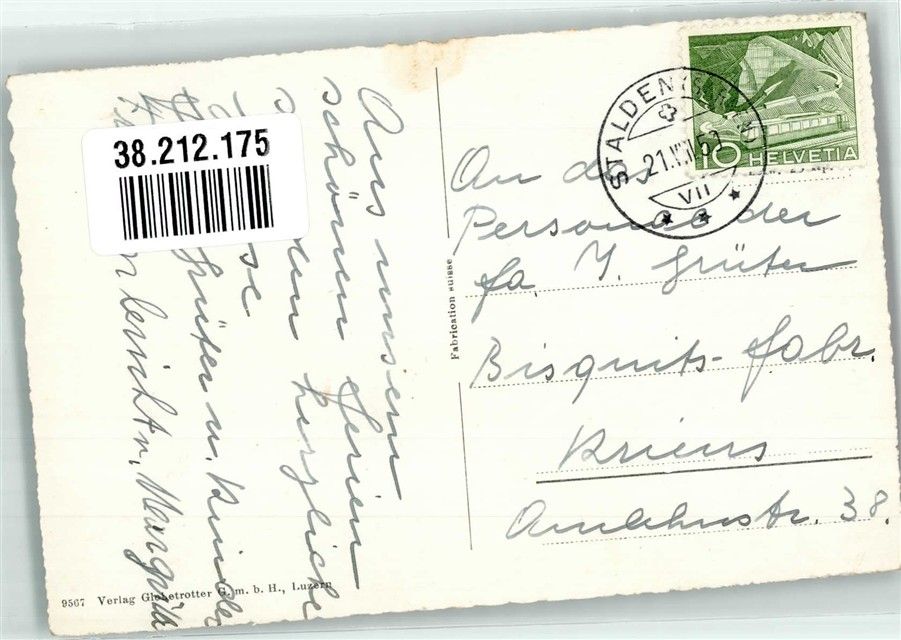 38.212.175
Aus unsern
schönen Ferien
senden herzliche
Grüsse
Grüter u. Kinder
Margrith
9567 Verlag Globetrotter G. m. b. H., Luzern
Fabrication suisse
STALDEN
21.VIII.50
VII
10 HELVETIA
An das
Personal der
Fa. J. Grüter
Bisquits-Fabr.
Kriens
Amlehnstr. 38.